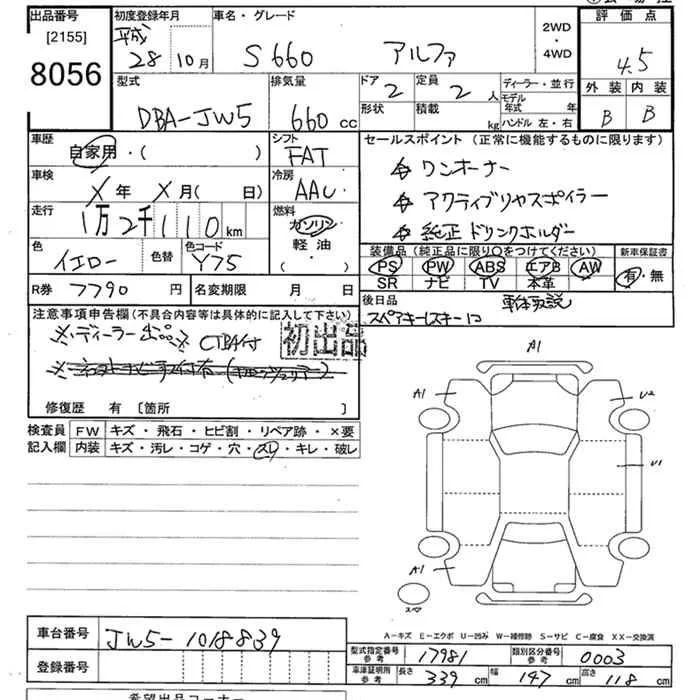 出品番号
[2155]
8056
初度登録年月
平成
28 10月
車名・グレード
S660 アルファ
2WD
・
4WD
評価点
4.5
外装 内装
B B
型式
DBA-JW5
排気量
660 cc
ドア
2
定員
2 人
形状
積載
kg
ディーラー・並行
モデル
年式 年
ハンドル 左・右
車歴
自家用・( )
シフト
FAT
セールスポイント (正常に機能するものに限ります)
ワンオーナー
アクティブリヤスポイラー
純正ドリンクホルダー
車検
X年 X月( 日)
冷房
AAC
走行
1万2千110km
燃料
ガソリン
軽油
( ・ )
色
イエロー
色替
色コード
Y75
装備品 (純正品に限り○をつけてください)
PS PW ABS エアB AW
SR ナビ TV 本革
新車保証書
有・無
R券 7790 円
名変期限 月 日
後日品
スペアキー1 スキーに
車体取説
注意事項申告欄 (不具合内容等は具体的に記入して下さい)
※ディーラー出品※ CTBA付
初出品
修復歴 有 [箇所 ]
検査員
記入欄
FW キズ・飛石・ヒビ割・リペア跡・×要
内装 キズ・汚レ・コゲ・穴・スレ・キレ・破レ
A1
A1
U2
U1
A1
スペア
A-キズ E-エクボ U-凹み W-補修跡 S-サビ C-腐食 XX-交換済
車台番号 JW5-1018839
登録番号
型式指定番号
参考
17981
類別区分番号
参考
0003
車庫証明用
参考
長さ 339 cm
幅 147 cm
高さ 118 cm
希望出品コーナー